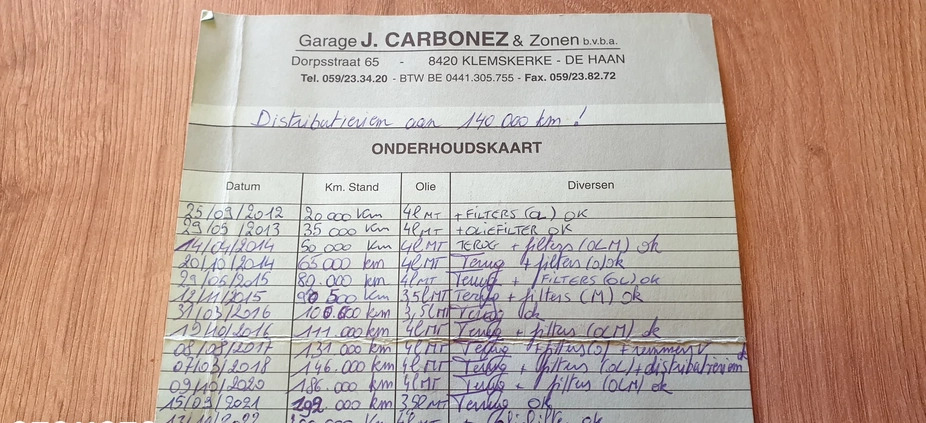 Garage J. CARBONEZ & Zonen b.v.b.a.
Dorpsstraat 65 - 8420 KLEMSKERKE - DE HAAN
Tel. 059/23.34.20 - BTW BE 0441.305.755 - Fax. 059/23.82.72
Distributieriem aan 140 000 km !
ONDERHOUDSKAART
Datum Km. Stand Olie Diversen
25/09/2012 20 000 Km 4l MT + FILTERS (OL) OK
29/05/2013 35 000 Km 4l MT + OLIEFILTER OK
14/04/2014 50 000 Km 4l MT TERUG + filters (OLM) ok
20/10/2014 65 000 km 4l MT Terug + filters (o) ok
29/05/2015 80.000 km 4l MT Terug + FILTERS (OL) ok
12/11/2015 90 500 Km 3,5l MT Terug + filters (M) ok
31/03/2016 100.600 km 3,5l MT Terug ok
19/10/2016 111.000 km 4l MT Terug + filters (OLM) ok
08/08/2017 131 000 km 4l MT Terug + filters (o) + remmen V
07/03/2018 146.000 km 4l MT Terug + filters (OL) + distributieriem ok
09/10/2020 186.000 km 4l MT Terug + filters (OLM) ok
15/09/2021 192 000 km MT Terug ok